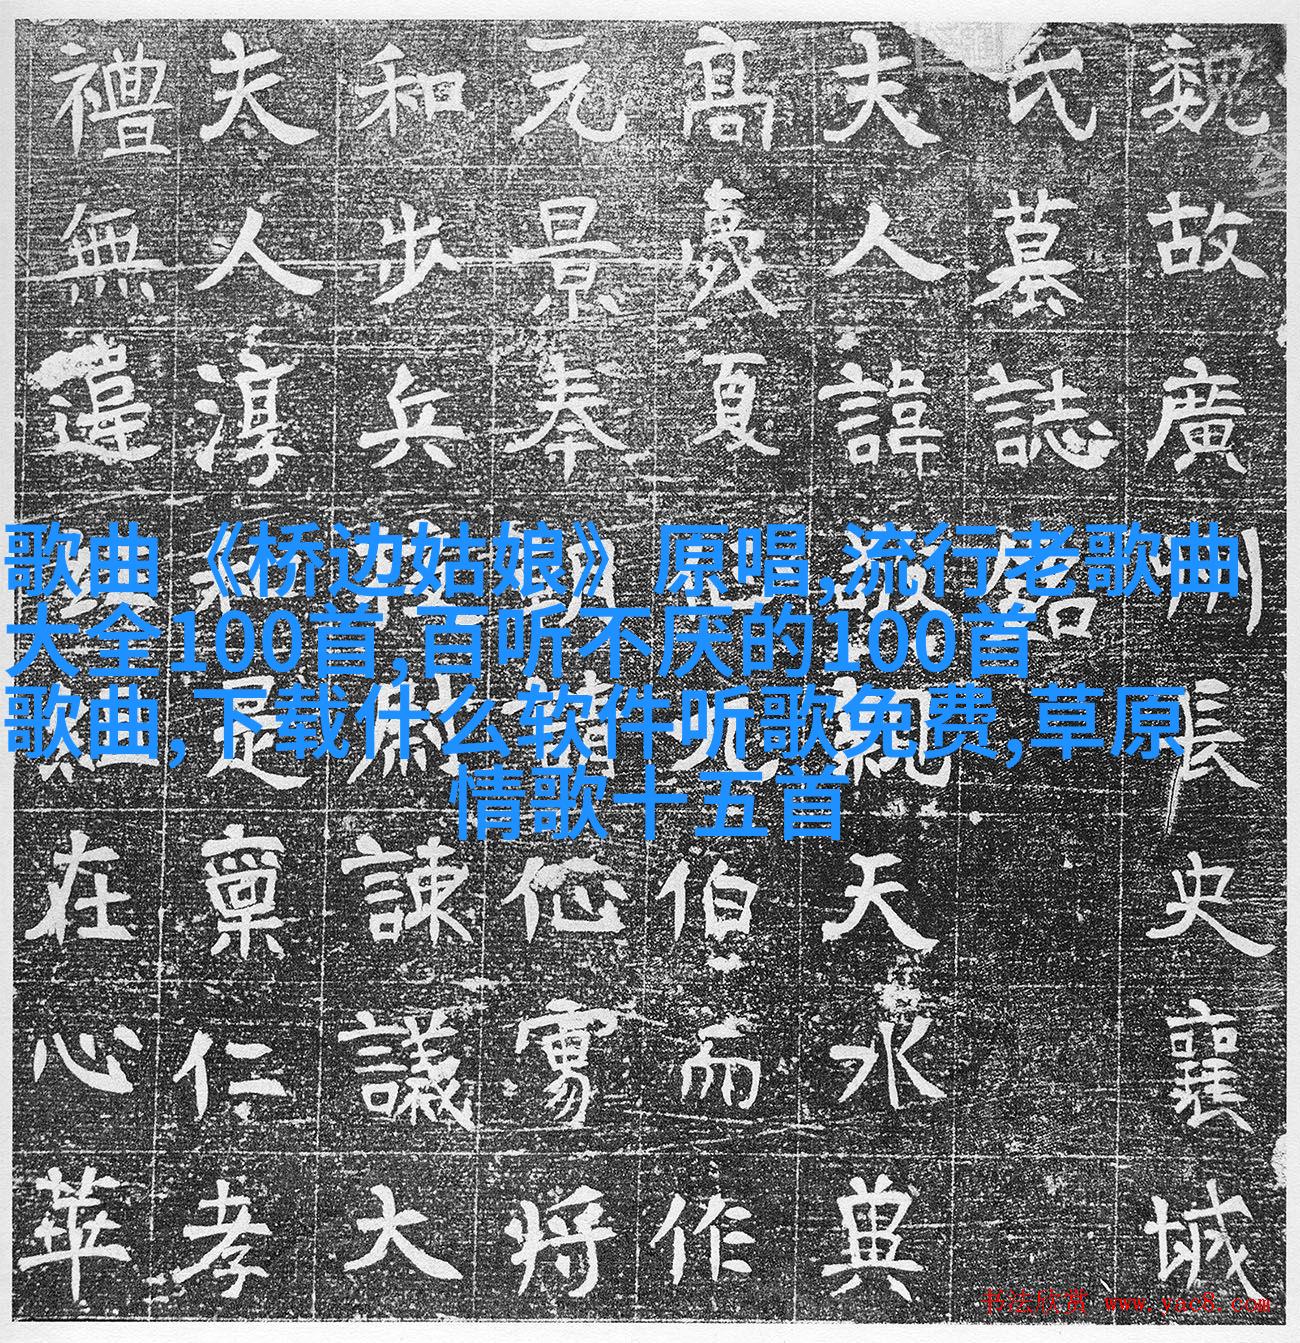 魏故廣長史襄城
氏墓誌銘
夫人諱天水典
高夏伯而作
元景奉朝請將
和步兵校尉諫議大
夫人淳和是稟仁孝
禮無違在心華
歌曲《桥边姑娘》原唱,流行老歌曲
大全100首,百听不厌的100首
歌曲,下载什么软件听歌免费,草原
情歌十五首
书法欣赏 www.yac8.com